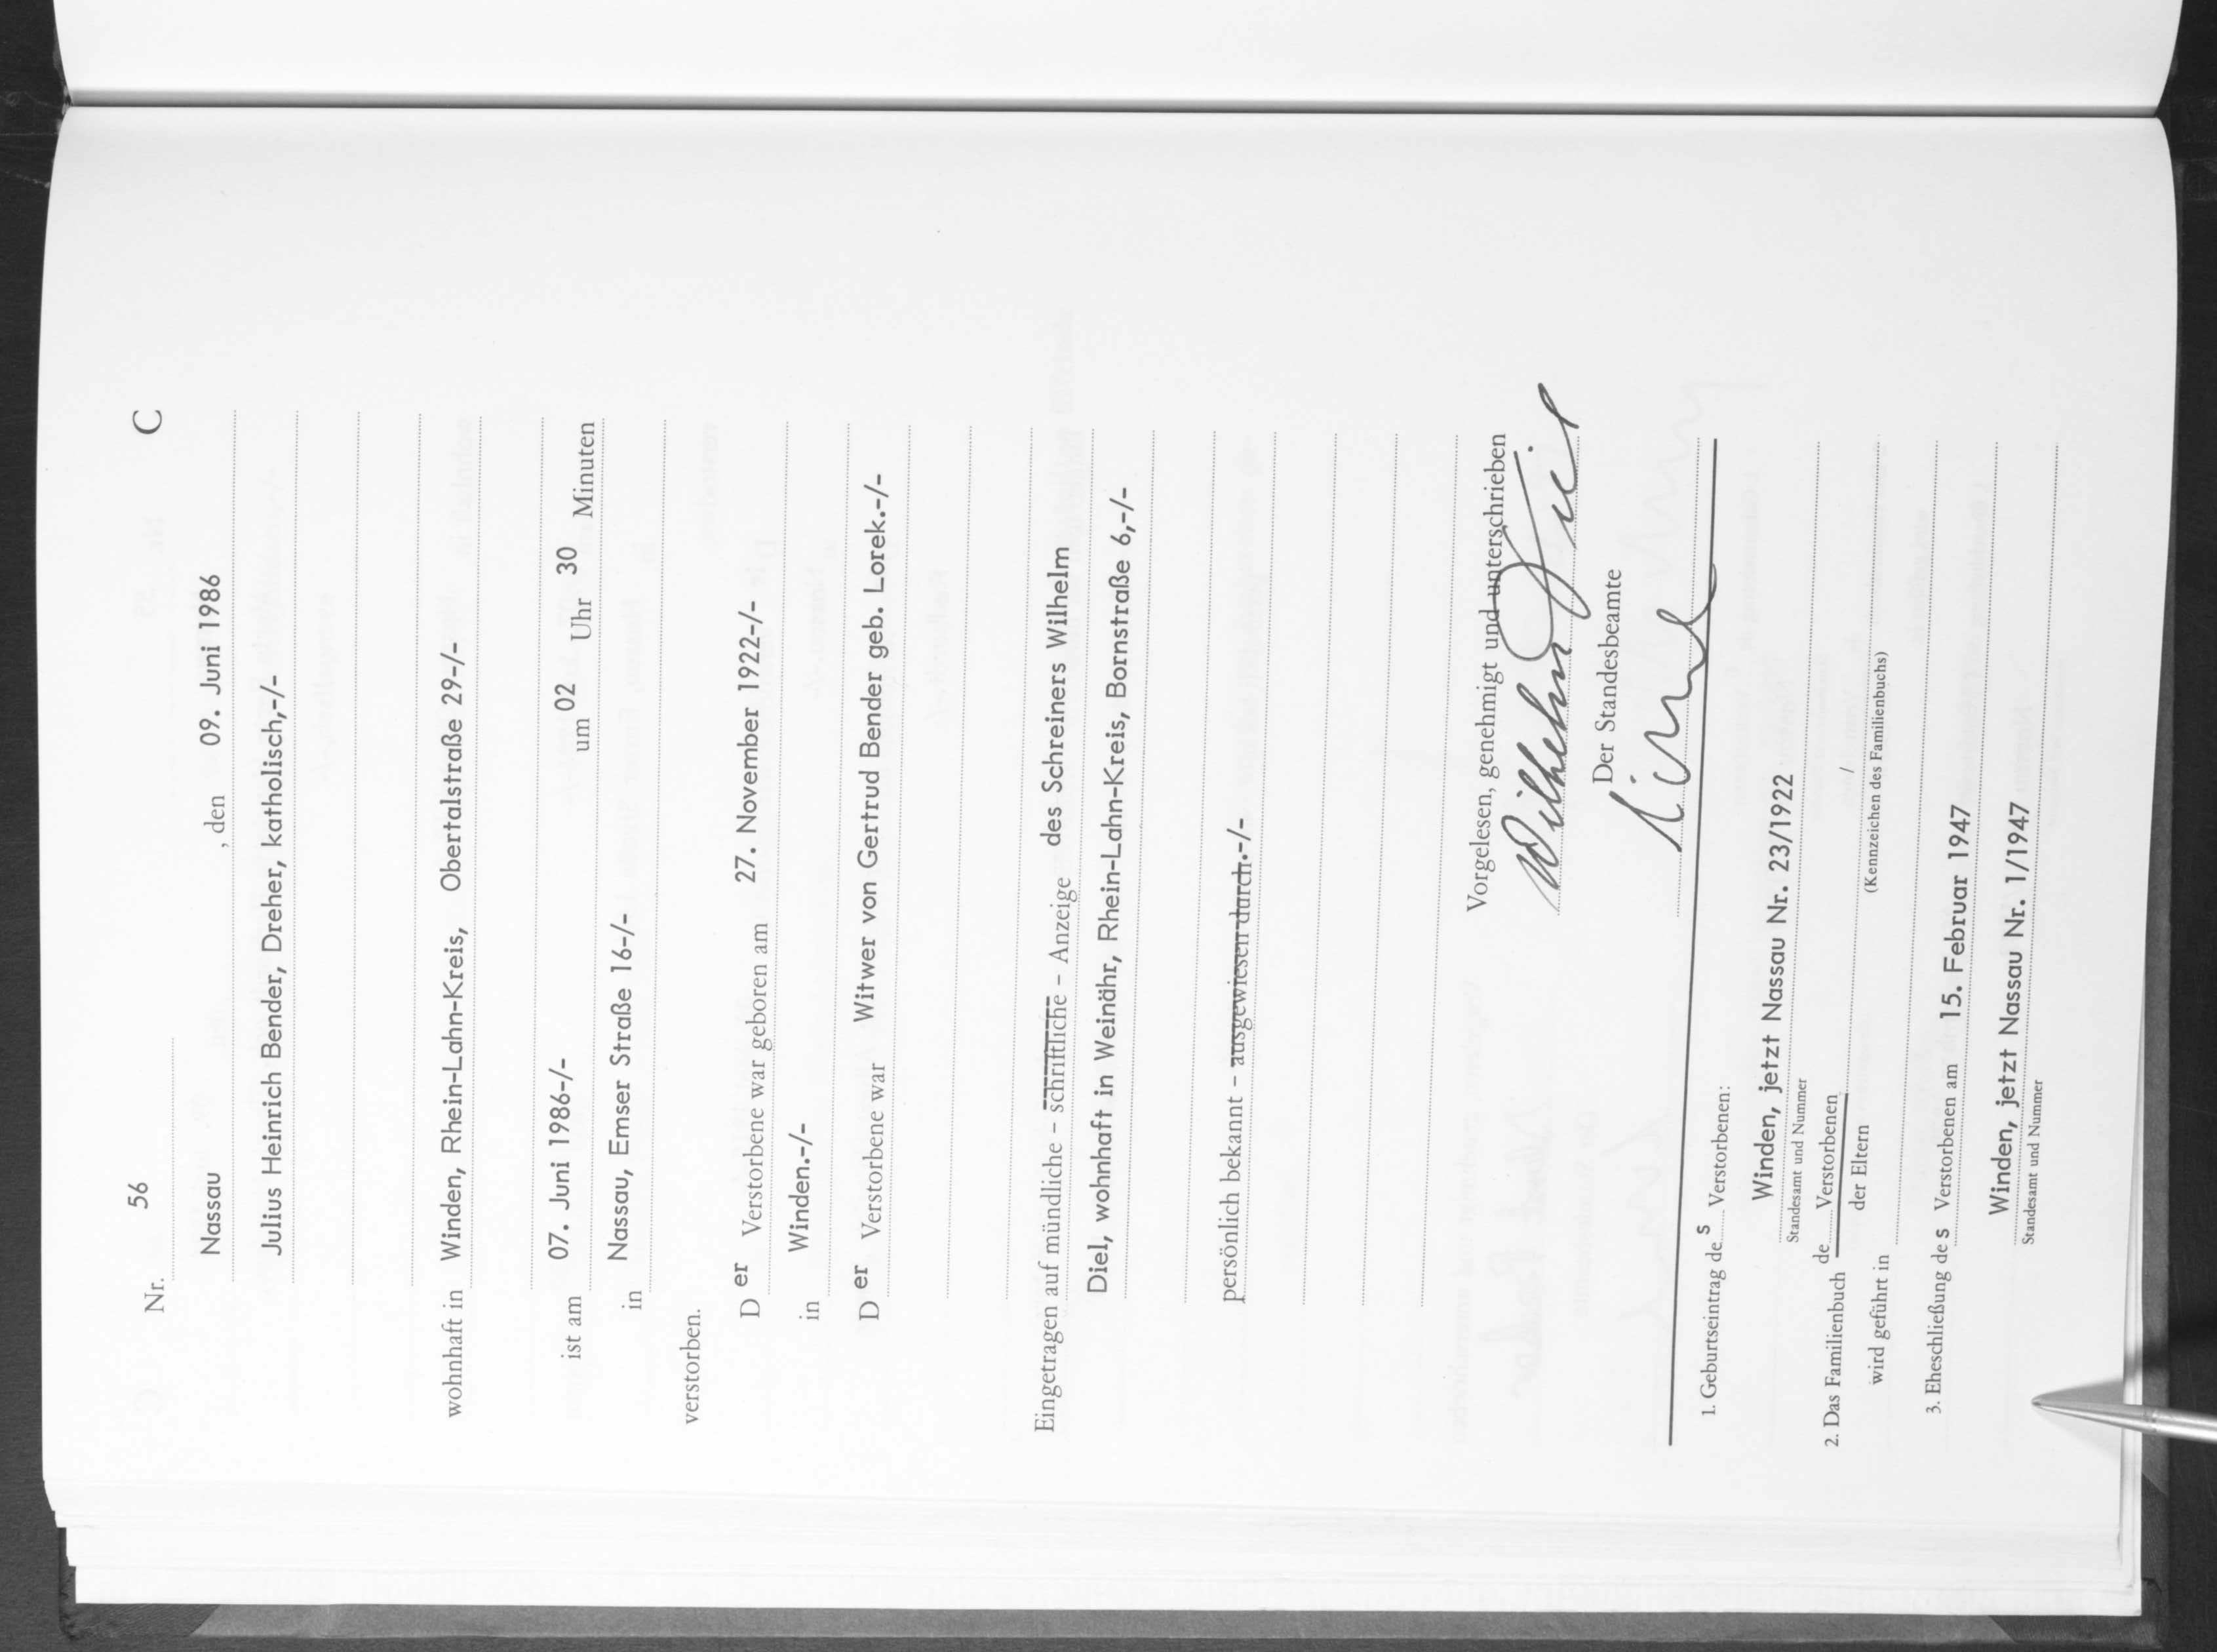 Nr. 56 C
Nassau , den 09. Juni 1986
Julius Heinrich Bender, Dreher, katholisch,-/-
wohnhaft in Winden, Rhein-Lahn-Kreis, Obertalstraße 29-/-
ist am 07. Juni 1986-/- um 02 Uhr 30 Minuten
in Nassau, Emser Straße 16-/-
verstorben.
D er Verstorbene war geboren am 27. November 1922-/-
in Winden.-/-
D er Verstorbene war Witwer von Gertrud Bender geb. Lorek.-/-
Eingetragen auf mündliche – schriftliche – Anzeige des Schreiners Wilhelm
Diel, wohnhaft in Weinähr, Rhein-Lahn-Kreis, Bornstraße 6,-/-
persönlich bekannt – ausgewiesen durch.-/-
Vorgelesen, genehmigt und unterschrieben
Wilhelm Diel
Der Standesbeamte
1. Geburtseintrag de s Verstorbenen:
Winden, jetzt Nassau Nr. 23/1922
Standesamt und Nummer
2. Das Familienbuch de Verstorbenen
der Eltern /
wird geführt in (Kennzeichen des Familienbuchs)
3. Eheschließung de s Verstorbenen am 15. Februar 1947
Winden, jetzt Nassau Nr. 1/1947
Standesamt und Nummer